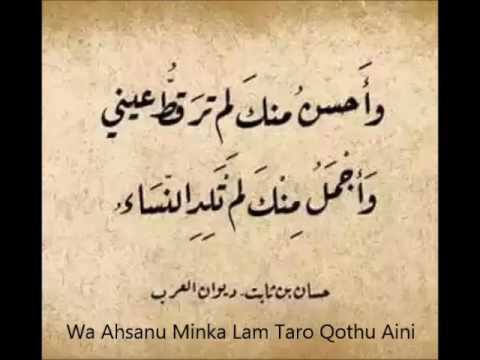 وَأَحسنُ منكَ لم ترَ قطُّ عيني
وَأَجْمَلُ مِنْكَ لَمْ تَلَدِ النِّسَاءُ
حسان بن ثابت - ديوان العرب
Wa Ahsanu Minka Lam Taro Qothu Aini